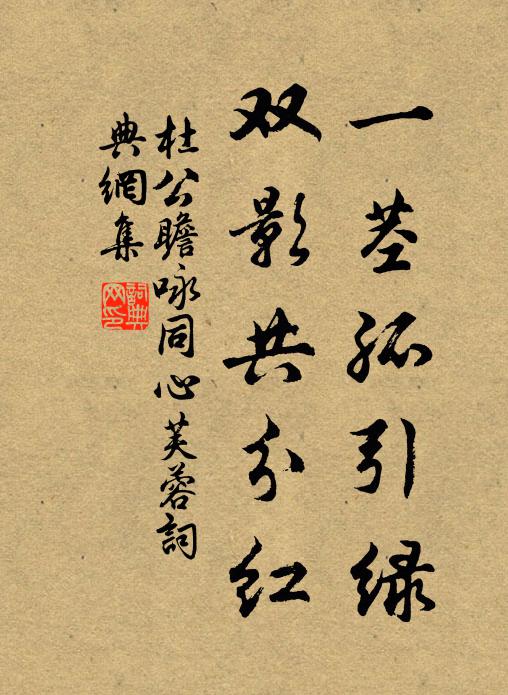 一茎孤引绿
双影共分红
杜公瞻咏同心芙蓉詞
典網集
詞典网印